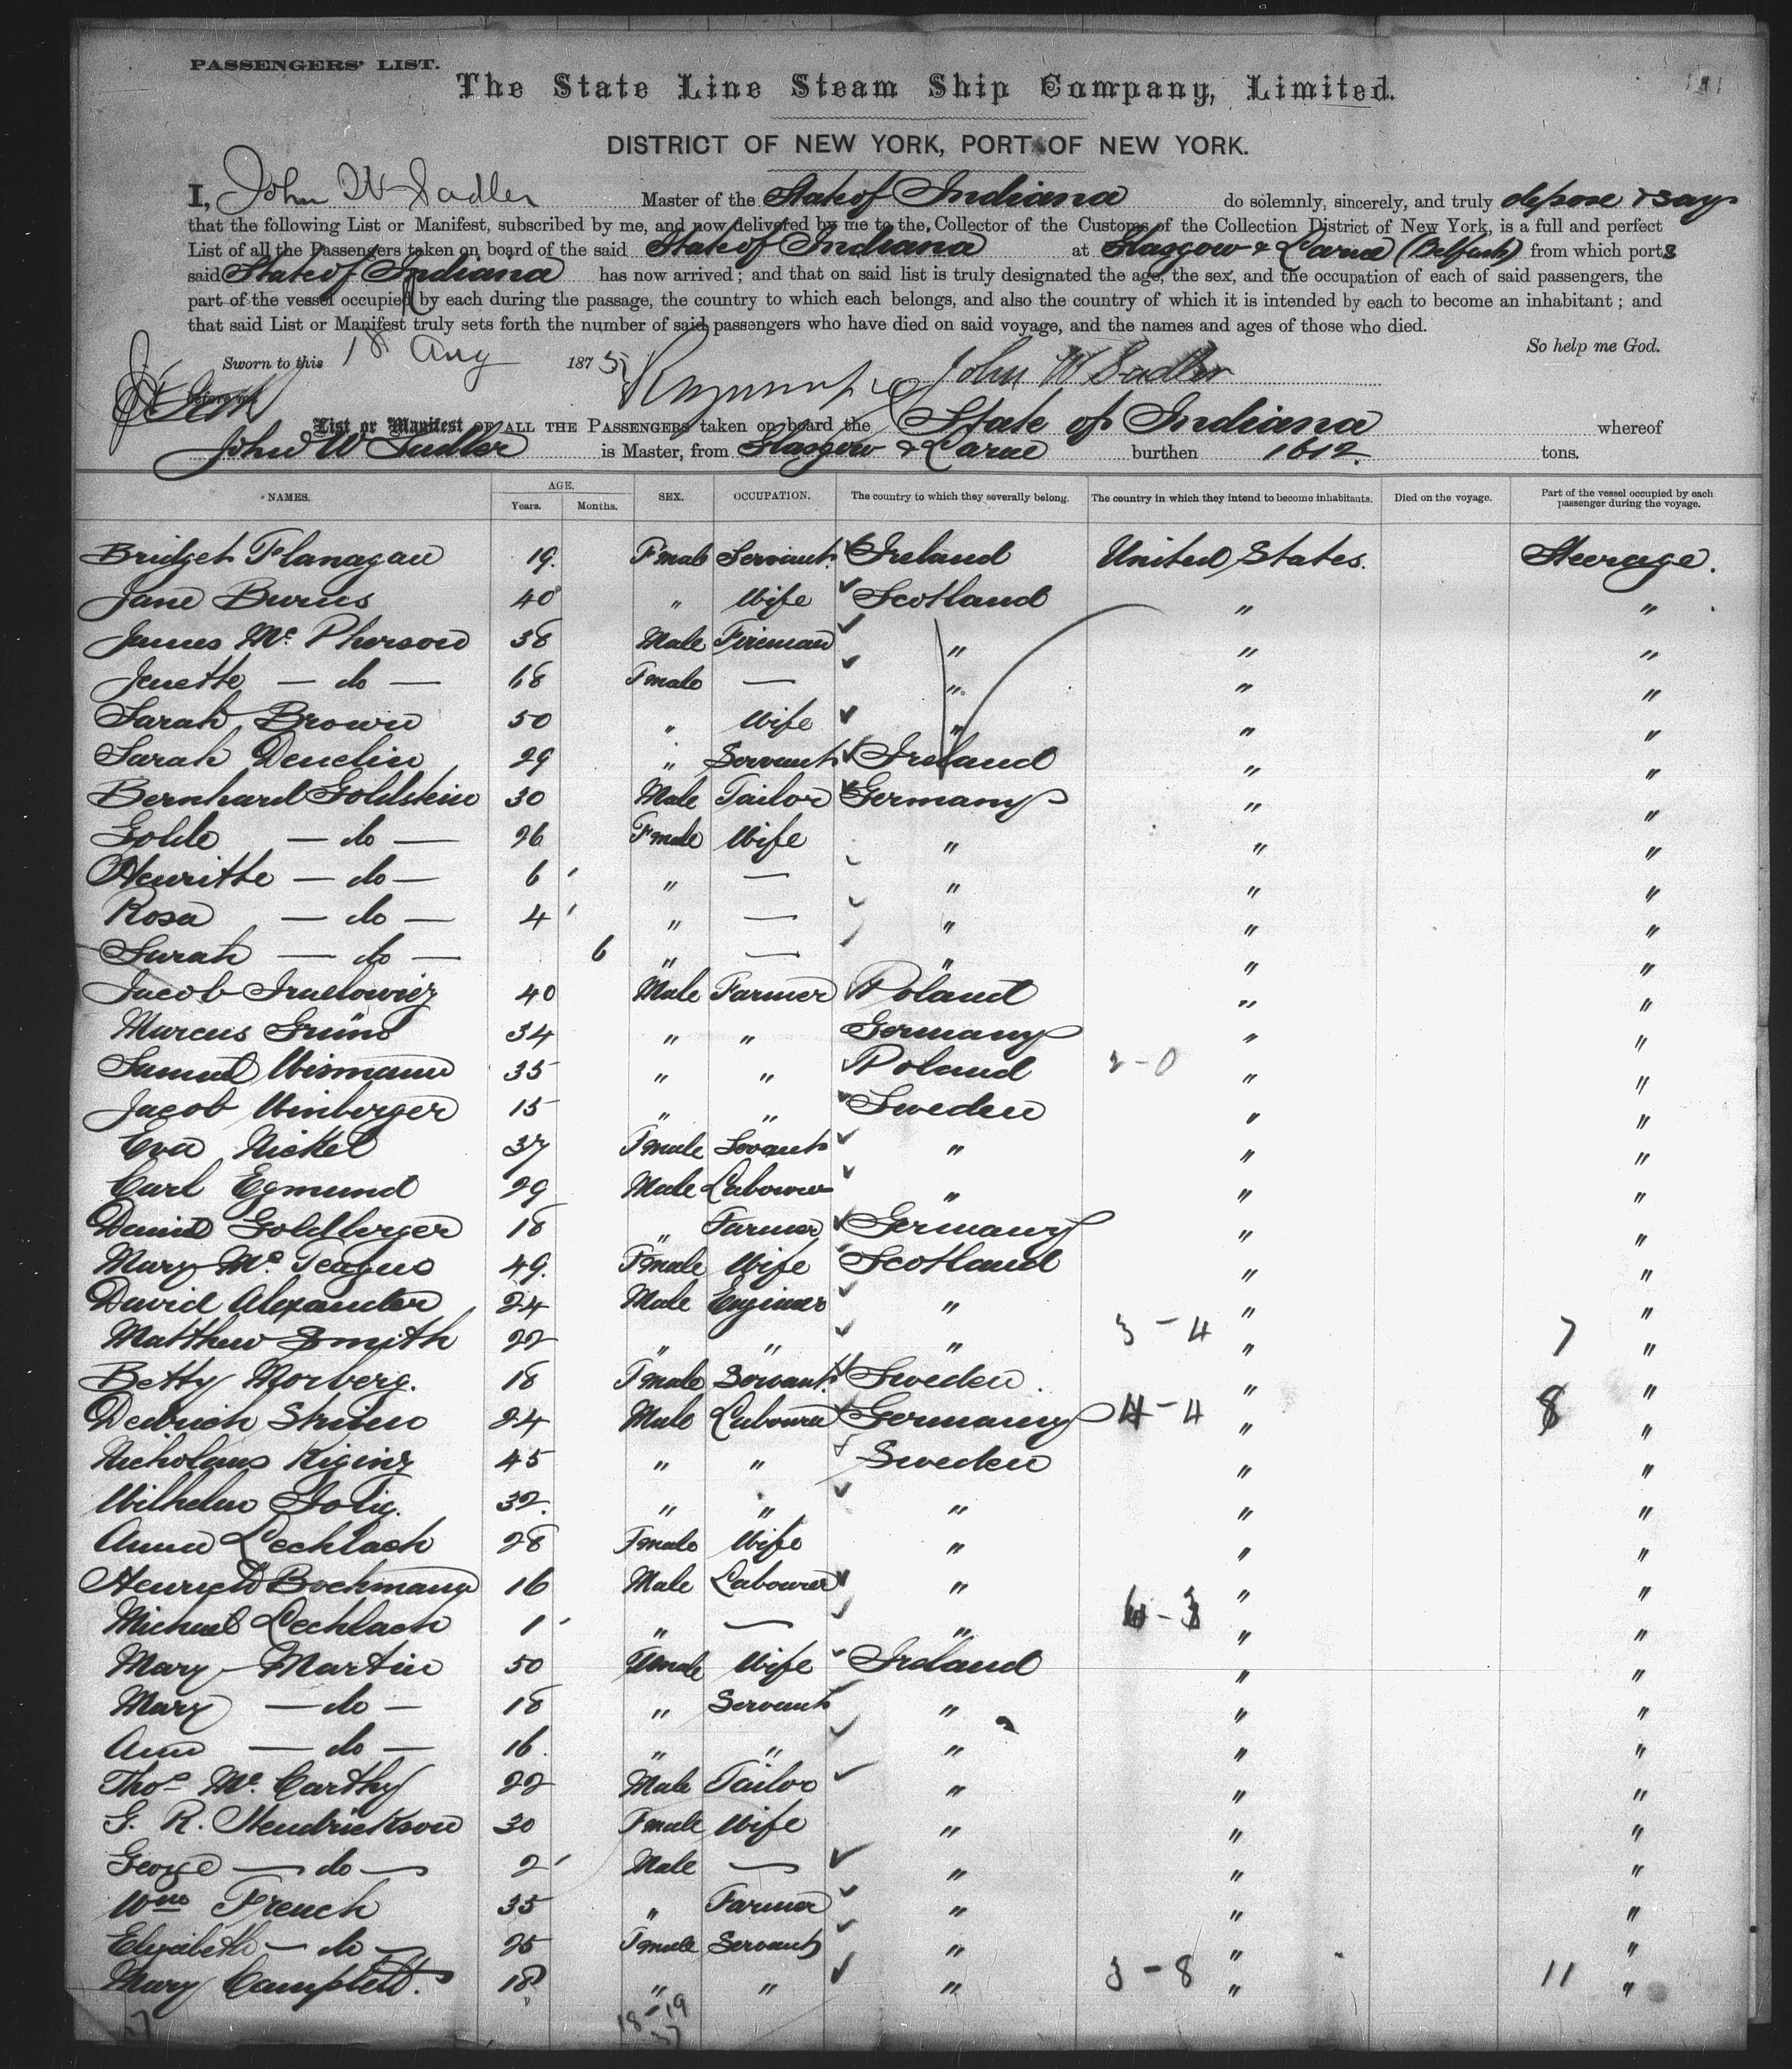 PASSENGERS' LIST.
The State Line Steam Ship Company, Limited.
DISTRICT OF NEW YORK, PORT OF NEW YORK.
I, John W Sadler Master of the State of Indiana do solemnly, sincerely, and truly depose & say
that the following List or Manifest, subscribed by me, and now delivered by me to the Collector of the Customs of the Collection District of New York, is a full and perfect
List of all the Passengers taken on board of the said State of Indiana at Glasgow & Larne (Belfast) from which ports
said State of Indiana has now arrived; and that on said list is truly designated the age, the sex, and the occupation of each of said passengers, the
part of the vessel occupied by each during the passage, the country to which each belongs, and also the country of which it is intended by each to become an inhabitant; and
that said List or Manifest truly sets forth the number of said passengers who have died on said voyage, and the names and ages of those who died.
So help me God.
Sworn to this 18 Aug 1875 John W Sadler
before me
List or Manifest OF ALL THE PASSENGERS taken on board the State of Indiana whereof
John W Sadler is Master, from Glasgow & Larne burthen 1612. tons.
NAMES. AGE. Years. Months. SEX. OCCUPATION. The country to which they severally belong. The country in which they intend to become inhabitants. Died on the voyage. Part of the vessel occupied by each passenger during the voyage.
Bridget Flanagan 19. Fmale Servant Ireland United States. Steerage.
Jane Burns 40 " Wife Scotland " "
James Mc Pherson 38 Male Fireman " " "
Jenette — do — 68 Fmale — " " "
Sarah Brown 50 " Wife " " "
Sarah Denelin 29 " Servant Ireland " "
Bernhard Goldstein 30 Male Tailor Germany " "
Golde — do — 26 Fmale Wife " " "
Henritte — do — 6 " — " " "
Rosa — do — 4 " — " " "
Sarah — do — 6 " — " " "
Jacob Isaelowicz 40 Male Farmer Poland " "
Marcus Grüno 34 " " Germany " "
Samuel Wismann 35 " " Poland " "
Jacob Winberger 15 " " Sweden " "
Eva Nickel 37 Fmale Servant " " "
Carl Egmund 29 Male Labourer " " "
Daniel Goldberger 18 " Farmer Germany " "
Mary Mc Teague 49. Fmale Wife Scotland " "
David Alexander 24 Male Engineer " " "
Matthew Smith 22 " " " 3 - 4 " 7 "
Betty Norberg. 18 Fmale Servant Sweden. " "
Deidrich Stribno 24 Male Labourer Germany 4 - 4 " 8 "
Nicholaus Riging 45 " " Sweden " "
Wilhelm Solig. 32. " " " " "
Anna Lechlach 28 Fmale Wife " " "
Henrich Bockmann 16 Male Labourer " " "
Michael Lechlach 1 " — " " "
Mary Martin 50 Fmale Wife Ireland " "
Mary — do — 18 " Servant " " "
Ann — do — 16. " " " " "
Thos Mc Carthy 22 Male Tailor " " "
G. R. Hendrickson 30 Fmale Wife " " "
George — do — 2 Male — " " "
Wm French 35 " Farmer " " "
Elizabeth — do — 25 Fmale Servant " " "
Mary Campbell. 18 " " " 3 - 8 " 11 "
18 - 19
37